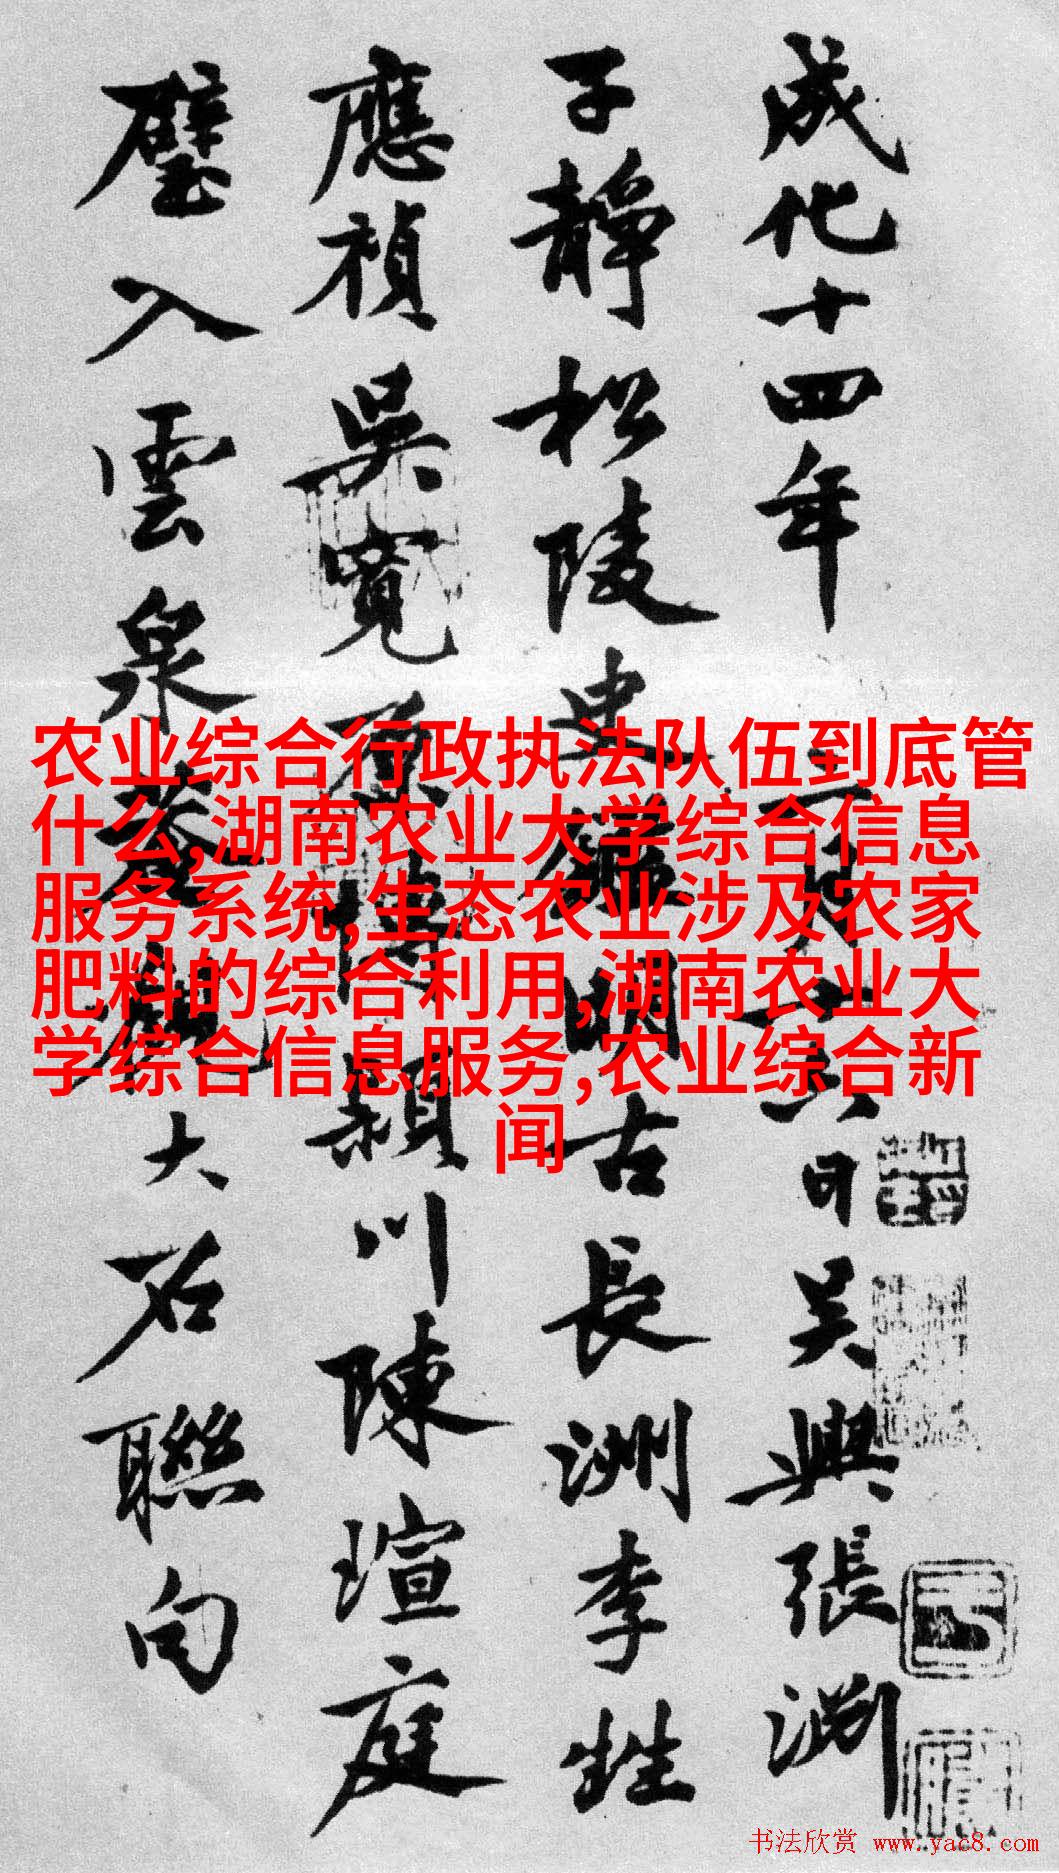 成化十四年二月十六日吴興張淵
子静松陵史鑑明古長洲李甡
應禎吳寬原博潁川陳瑄庭
璧入雲泉菴觀大石聯句
农业综合行政执法队伍到底管
什么,湖南农业大学综合信息
服务系统,生态农业涉及农家
肥料的综合利用,湖南农业大
学综合信息服务,农业综合新
闻
书法欣赏 www.yac8.com